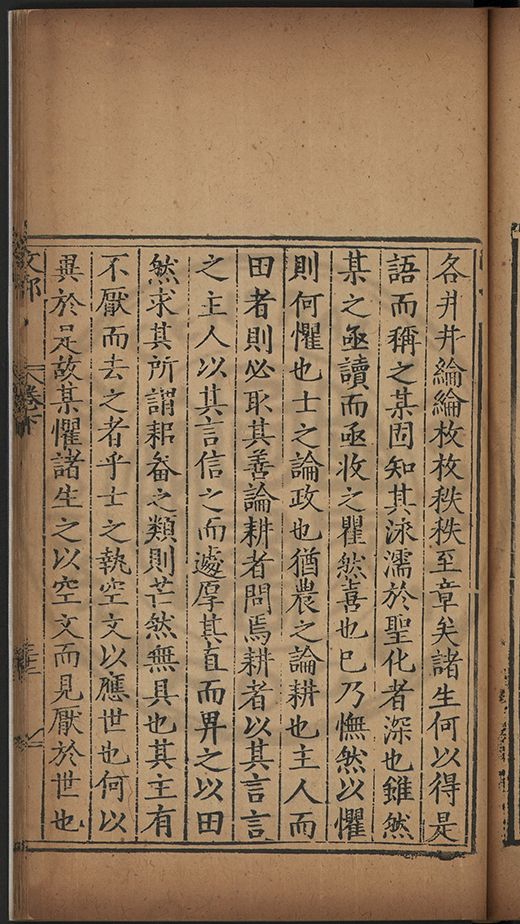 各井井綸綸枚枚秩秩至章矣諸生何以得是
語而稱之某固知其涵濡於聖化者深也雖然
某之亟讀而亟收之瞿然喜也已乃憮然以懼
則何懼也士之論政也猶農之論耕也主人而
田者則必取其善論耕者問焉耕者以其言言
之主人以其言信之而遽厚其直而畀之以田
然求其所謂耜畚之類則芒然無具也其主有
不厭而去之者乎士之執空文以應世也何以
異於是故某懼諸生之以空文而見厭於世也
卷下